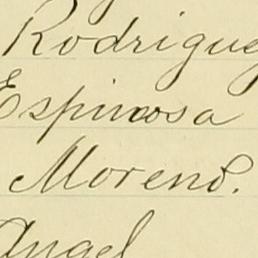 Rodrigue
Espinosa
Moreno.
Angel